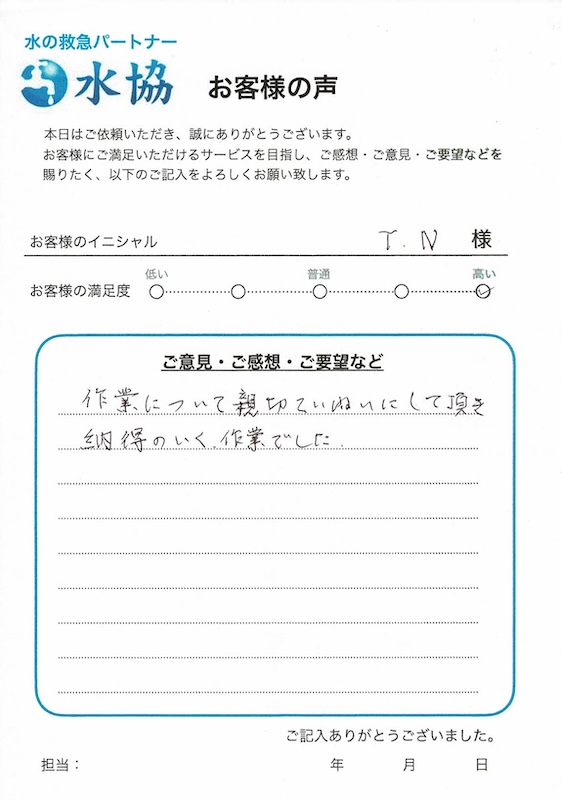 水の救急パートナー
水協 お客様の声
本日はご依頼いただき、誠にありがとうございます。
お客様にご満足いただけるサービスを目指し、ご感想・ご意見・ご要望などを
賜りたく、以下のご記入をよろしくお願い致します。
お客様のイニシャル T.N 様
低い 普通 高い
お客様の満足度
ご意見・ご感想・ご要望など
作業について親切ていねいにして頂き
納得のいく、作業でした.
ご記入ありがとうございました。
担当: 年 月 日